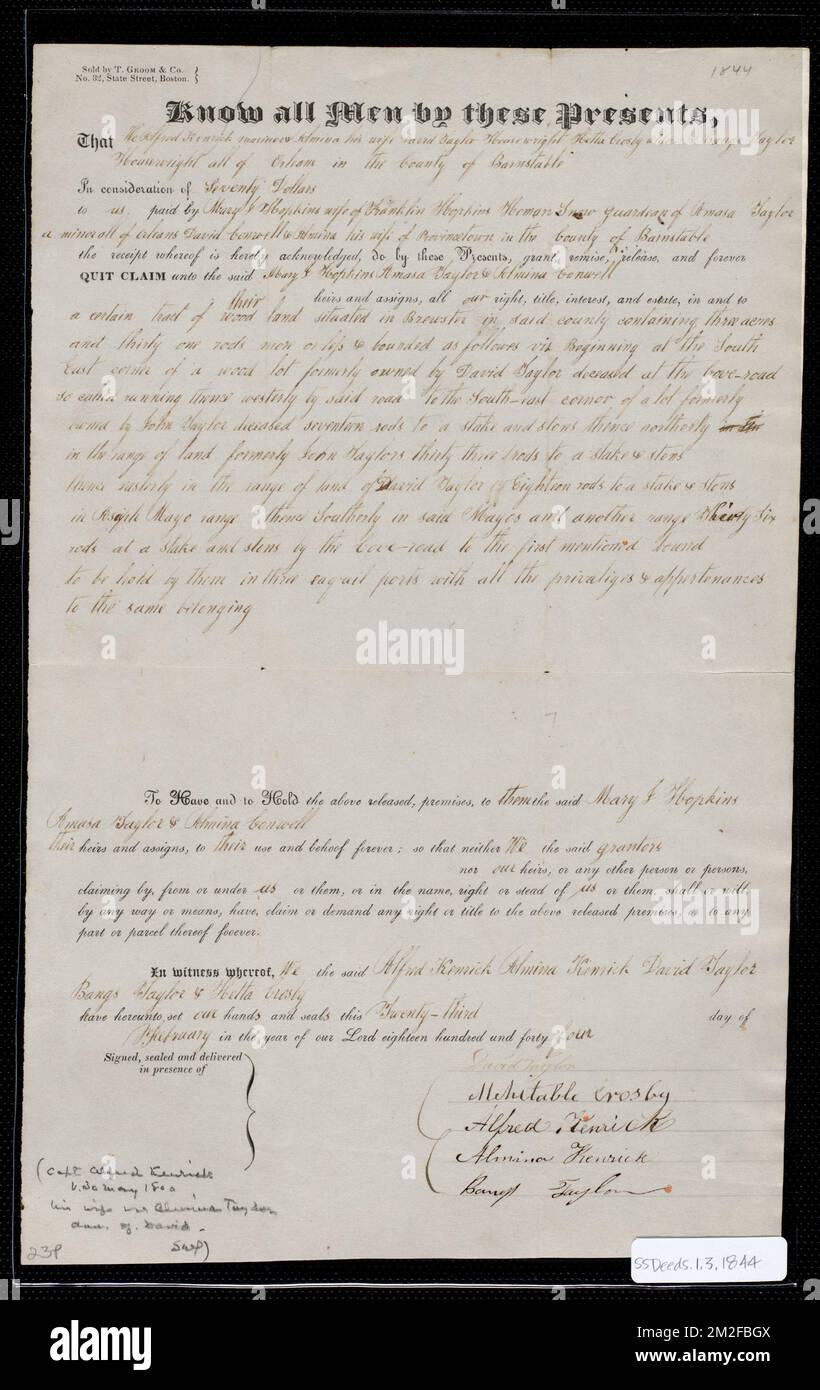 Sold by T. GROOM & Co.
No. 82, State Street, Boston.
1844
Know all Men by these Presents,
That We Alfred Kenrick mariner & Almina his wife David Taylor Housewright Hetta Crosby Taylor
Housewright all of Orleans in the County of Barnstable
In consideration of Seventy Dollars
to us paid by Mary J Hopkins wife of Franklin Hopkins Heman Snow guardian of Amasa Taylor
a minor all of Orleans David Conwell & Almina his wife of Provincetown in the County of Barnstable
the receipt whereof is hereby acknowledged, do by these Presents, grant, remise, release, and forever
QUIT CLAIM unto the said Mary J Hopkins Amasa Taylor & Almina Conwell
their heirs and assigns, all our right, title, interest, and estate, in and to
a certain tract of wood land situated in Brewster in said county containing three acres
and thirty one rods more or less & bounded as follows viz Beginning at the South
East corner of a wood lot formerly owned by David Taylor deceased at the Cove-road
so called running thence westerly by said road to the South-east cornor of a lot formerly
owned by John Taylor diceased seventeen rods to a stake and stons thence northerly
in the range of land formerly John Taylors thirty three rods to a stake & stons
thence easterly in the range of land of David Taylor Eighteen rods to a stake & stons
in Asoph Mayo range thence Southerly in said Mayos and another range thirty Six
rods at a stake and stons by the Cove-road to the first mentioned bound
to be hold by them in three eaquil parts with all the privaliges & appertenances
to the same belonging
To Have and to Hold the above released, premises, to them the said Mary J Hopkins
Amasa Taylor & Almina Conwell
their heirs and assigns, to their use and behoof forever; so that neither We the said grantors
nor our heirs, or any other person or persons,
claiming by, from or under us or them, or in the name, right or stead of us or them, shall or will,
by any way or means, have, claim or demand any right or title to the above released premises, or to any
part or parcel thereof foever.
In witness whereof, We the said Alfred Kenrick Almina Kenrick David Taylor
Bangs Taylor & Hetta Crosby
have hereunto set our hands and seals this Twenty-third day of
February in the year of our Lord eighteen hundred and forty four
Signed, sealed and delivered
in presence of
David Taylor
Mehitable Crosby
Alfred Kenrick
Almina Kenrick
Bangs Taylor
(Capt Alfred Kenrick
b. 30 May 1800
his wife was Almina Taylor
dau. of David
23P
SSDeeds.1.3.1844
alamy
Image ID: 2M2FBGX
www.alamy.com